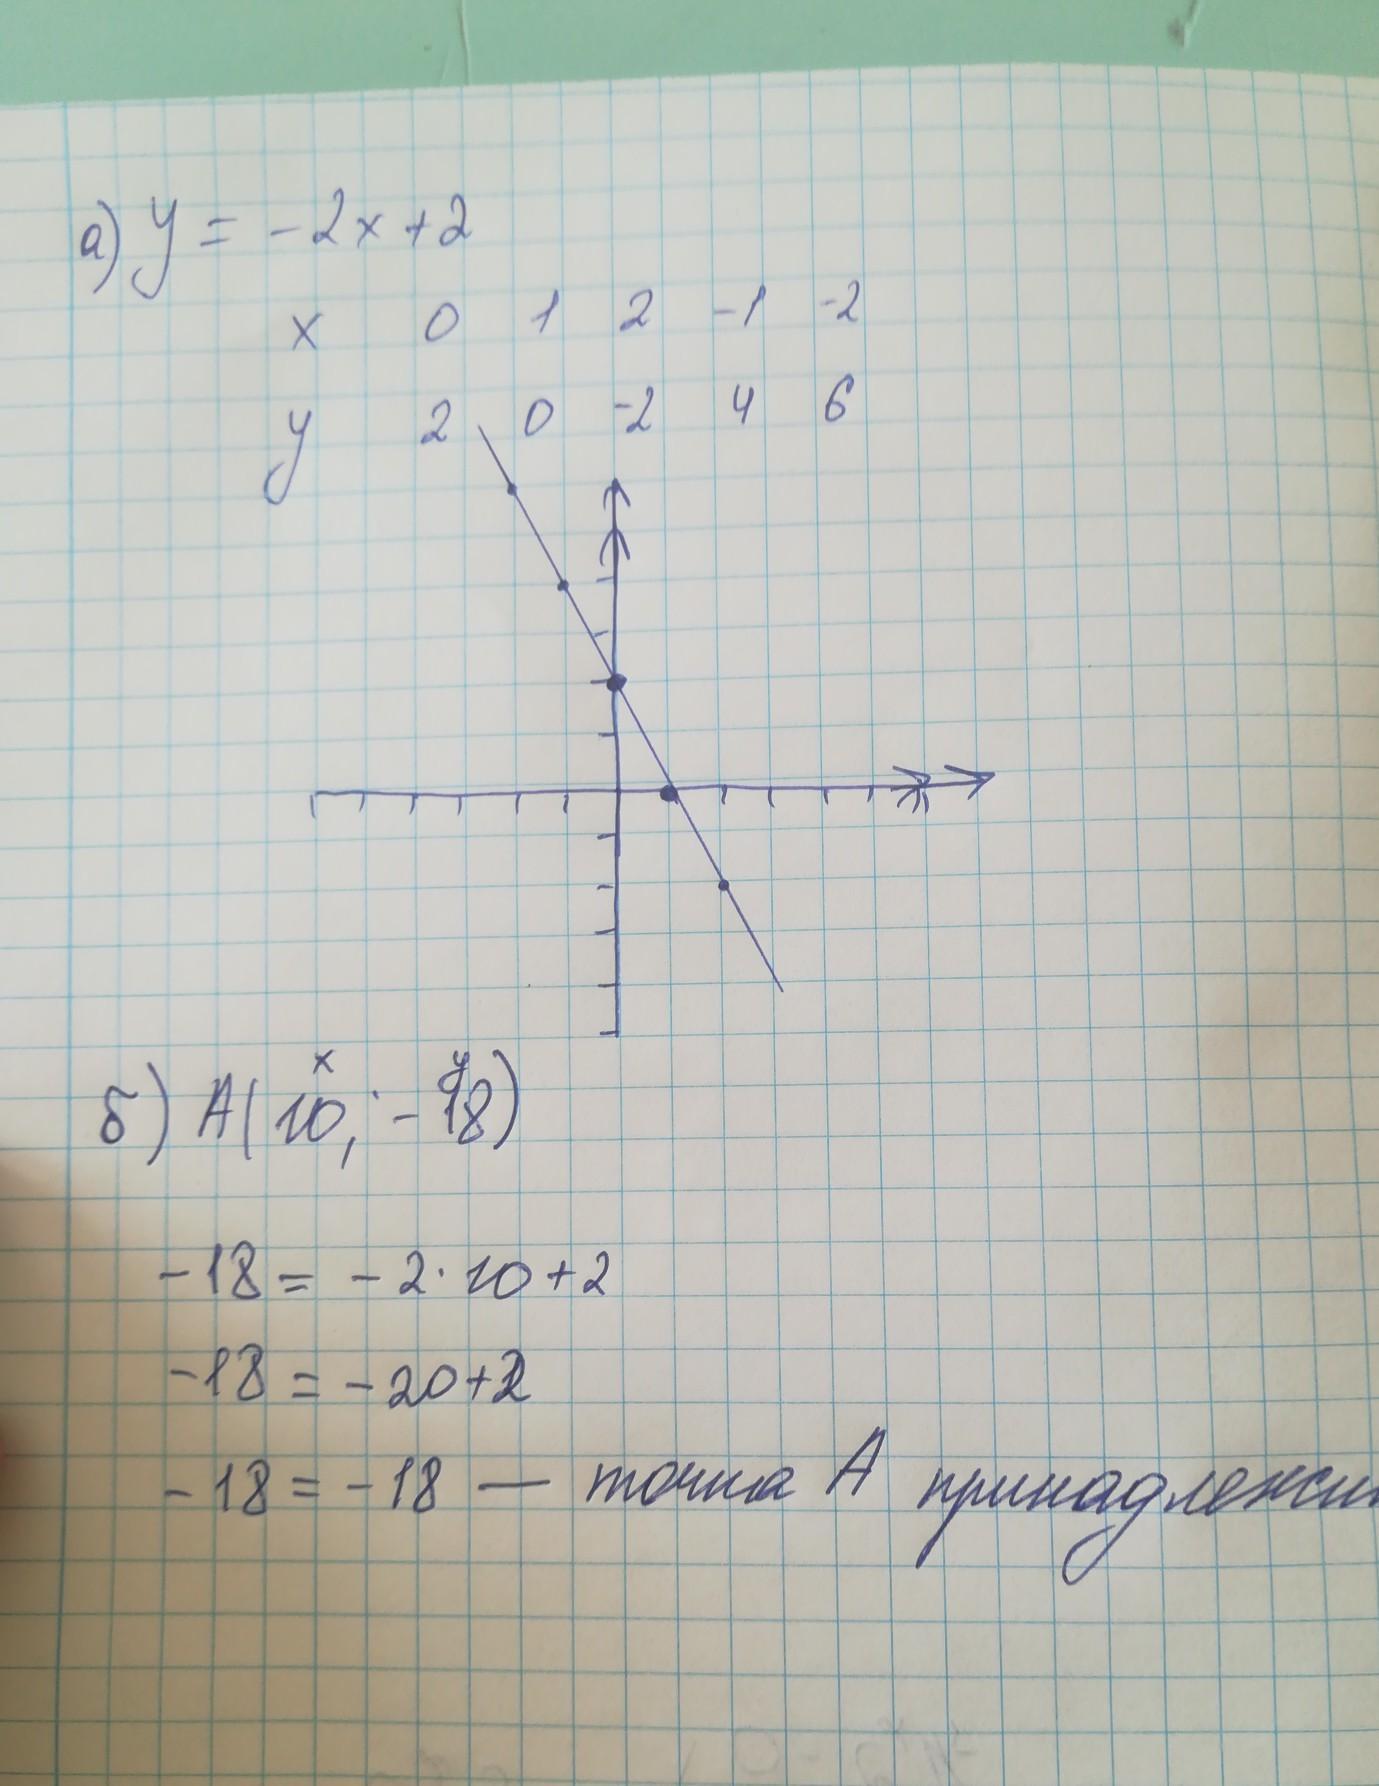 а) y = -2x+2
x 0 1 2 -1 -2
y 2 0 -2 4 6
x y
б) A(10; -18)
-18 = -2·10+2
-18 = -20+2
-18 = -18 — точка A принадлежит